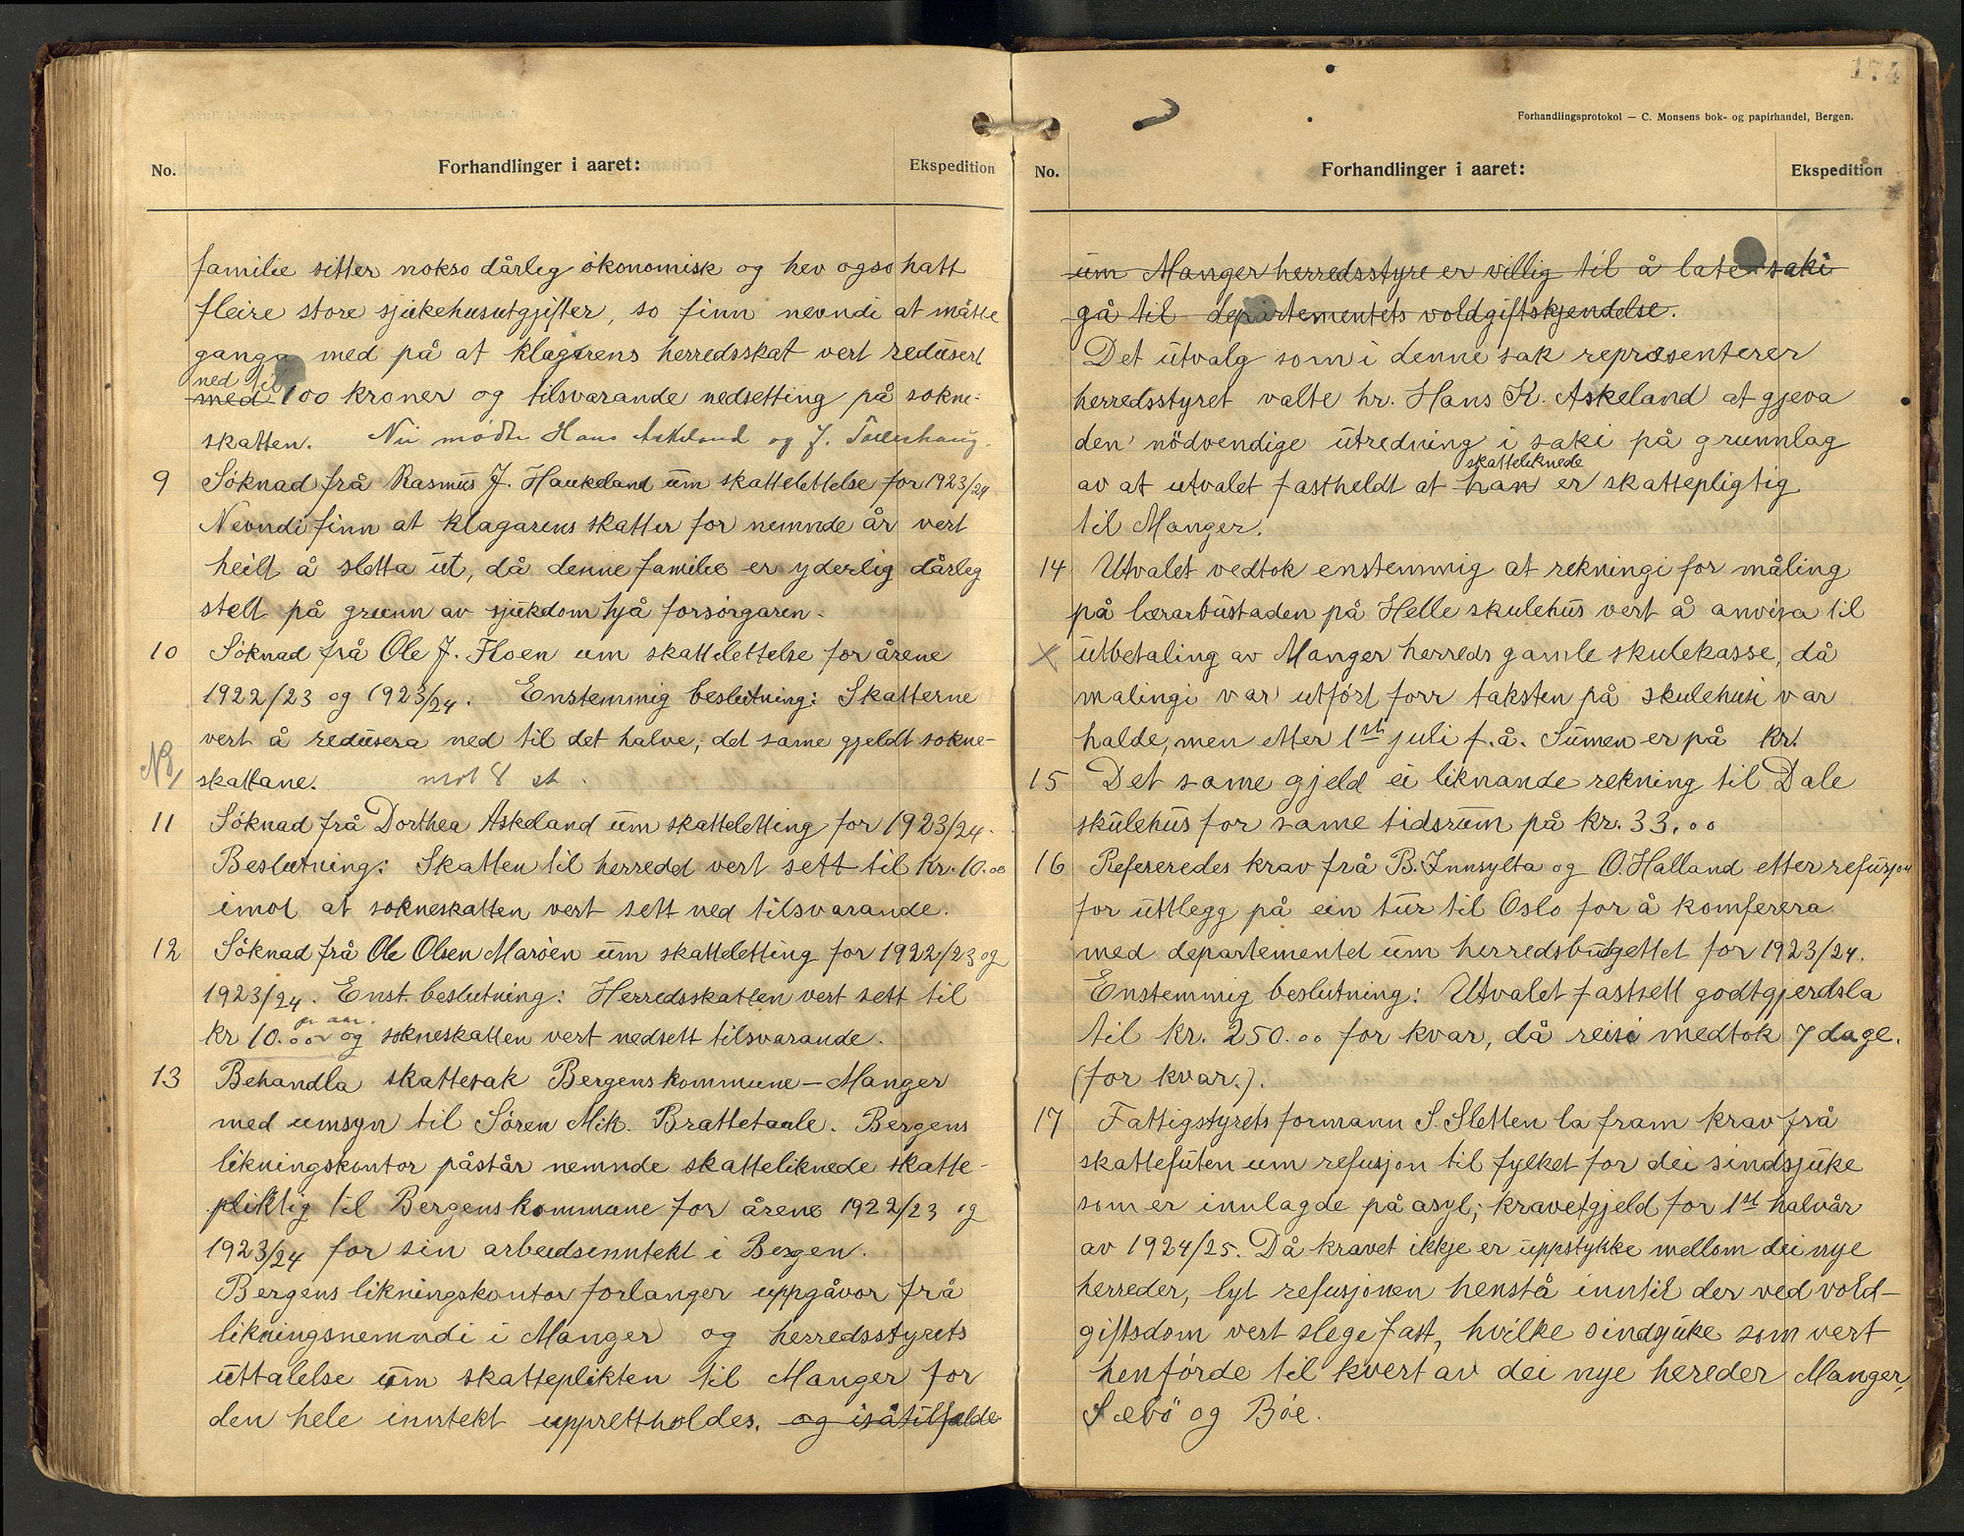 No.
Forhandlinger i aaret:
Ekspedition
familie sitter nokso dårleg økonomisk og hev ogso hatt
fleire store sjukehusutgifter, so finn nevndi at måtte
ganga med på at klagarens herredsskat vert redusert
ned til
med 100 kroner og tilsvarande nedsetting på sokne-
skatten. Nu mødte Hans Askeland og J.
9 Søknad frå Rasmus J. Haukeland um skattelettelse for 1923/24
Nevndi finn at klagarens skatter for nemnde år vert
heilt å sletta ut, då denne familie er yderlig dårleg
stelt på grunn av sjukdom hjå forsørgaren.
10 Søknad frå Ole J. Floen um skattelettelse for årene
1922/23 og 1923/24. Enstemmig beslutning: Skatterne
vert å redusera ned til det halve, det same gjeldt sokne-
skattane. mot 8 st.
11 Søknad frå Dorthea Askeland um skatteletting for 1923/24.
Beslutning: Skatten til herredet vert sett til Kr. 10.00
imot at sokneskatten vert sett ned tilsvarande.
12 Søknad frå Ole Olsen Marøen um skatteletting for 1922/23 og
1923/24. Enst. beslutning: Herredsskatten vert sett til
pr aar.
kr 10.00 og sokneskatten vert nedsett tilsvarande.
13 Behandla skattesak Bergens kommune – Manger
med umsyn til Søren Mik. Brattetaule. Bergens
likningskontor påstår nemnde skatteliknede skatte-
pliktig til Bergens kommune for årene 1922/23 og
1923/24 for sin arbeidsinntekt i Bergen.
Bergens likningskontor forlanger uppgåvor frå
likningsnemndi i Manger og herredsstyrets
uttalelse um skatteplikten til Manger for
den hele inntekt upprettholdes, og i så tilfælde
174
Forhandlingsprotokol — C. Monsens bok- og papirhandel, Bergen.
No.
Forhandlinger i aaret:
Ekspedition
um Manger herredsstyre er villig til å late saki
gå til departementets voldgiftskjendelse.
Det utvalg som i denne sak repræsenterer
herredsstyret valte hr. Hans K. Askeland at gjeva
den nödvendige utredning i saki på grunnlag
skatteliknede
av at utvalet fastheldt at han er skattepligtig
til Manger.
14 Utvalet vedtok enstemmig at rekningi for måling
på lærarbustaden på Helle skulehus vert å anvisa til
X utbetaling av Manger herreds gamle skulekasse, då
malingi var utført forr taksten på skulehusi var
halde, men etter 1st juli f.å. Sumen er på kr.
15 Det same gjeld ei liknande rekning til Dale
skulehus for same tidsrum på kr. 33.00
16 Refereredes krav frå B. Innsylta og O. Halland etter refusjon
for uttlegg på ein tur til Oslo for å komferera
med departementet um herredsbudgettet for 1923/24.
Enstemmig beslutning: Utvalet fastsett godtgjerdsla
til kr. 250.00 for kvar, då reisi medtok 7 dage.
(for kvar.).
17 Fattigstyrets formann S. Sletten la fram krav frå
skattefuten um refusjon til fylket for dei sindsjuke
som er innlagde på asyl; kravet gjeld for 1st halvår
av 1924/25. Då kravet ikkje er uppstykke mellom dei nye
herreder, lyt refusjonen henstå inntil der ved vold-
giftsdom vert slege fast, hvilke sindsjuke som vert
henförde til kvert av dei nye hereder Manger,
Sæbö og Bøe.